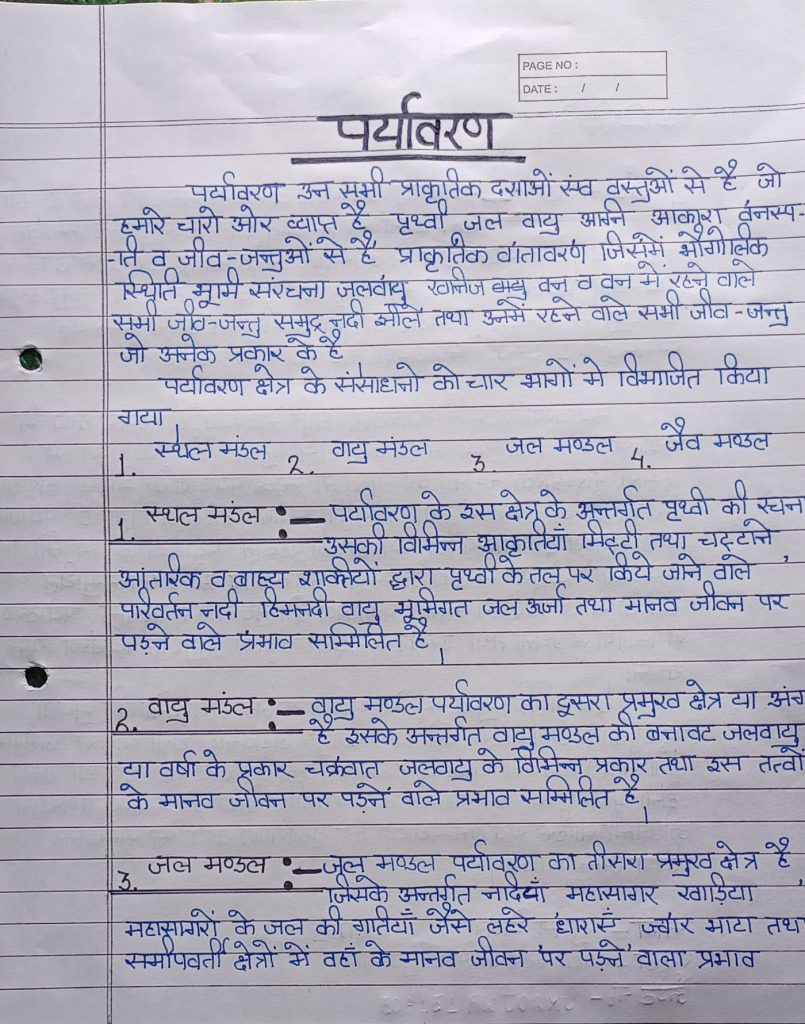 PAGE NO :
DATE : / /
पर्यावरण
पर्यावरण उन सभी प्राकृतिक दशाओं संव वस्तुओं से है जो
हमारे चारो ओर व्याप्त है पृथ्वी जल वायु अग्नि आकाश वनस्प-
-ति व जीव-जन्तुओं से है प्राकृतिक वातावरण जिसमें भौगोलिक
स्थिति भूमि संरचना जलवायु खनिज वन व वन मे रहने वाले
सभी जीव-जन्तु समुद्र नदी झीले तथा उनमें रहने वाले सभी जीव-जन्तु
जो अनेक प्रकार के है
पर्यावरण क्षेत्र के संसाधानो को चार भागों मे विभाजित किया
गया।
1. स्थल मंडल 2. वायु मंडल 3. जल मण्डल 4. जैव मण्डल
1. स्थल मंडल :- पर्यावरण के इस क्षेत्र के अन्तर्गत पृथ्वी की रचना
उसकी विभिन्न आकृतियाँ मिट्टी तथा चट्टाने,
आंतरिक व बाह्य शक्तीयों द्वारा पृथ्वी के तल पर किये जाने वाले
परिवर्तन नदी हिमनदी वायु भूमिगत जल ऊर्जा तथा मानव जीवन पर
पड़ने वाले प्रभाव सम्मिलित है।
2. वायु मंडल :- वायु मण्डल पर्यावरण का दूसरा प्रमुख क्षेत्र या अंग
है इसके अन्तर्गत वायु मण्डल की बनावट जलवायु
या वर्षा के प्रकार चक्रवात जलवायु के विभिन्न प्रकार तथा इस तत्वों
के मानव जीवन पर पड़ने वाले प्रभाव सम्मिलित है।
3. जल मण्डल :- जल मण्डल पर्यावरण का तीसरा प्रमुख क्षेत्र है
जिसके अन्तर्गत नदियाँ महासागर खाड़िया,
महासागरों के जल की गतियाँ जैसे लहरे धाराएँ ज्वार भाटा तथ
समीपवर्ती क्षेत्रों में वहाँ के मानव जीवन पर पड़ने वाला प्रभाव